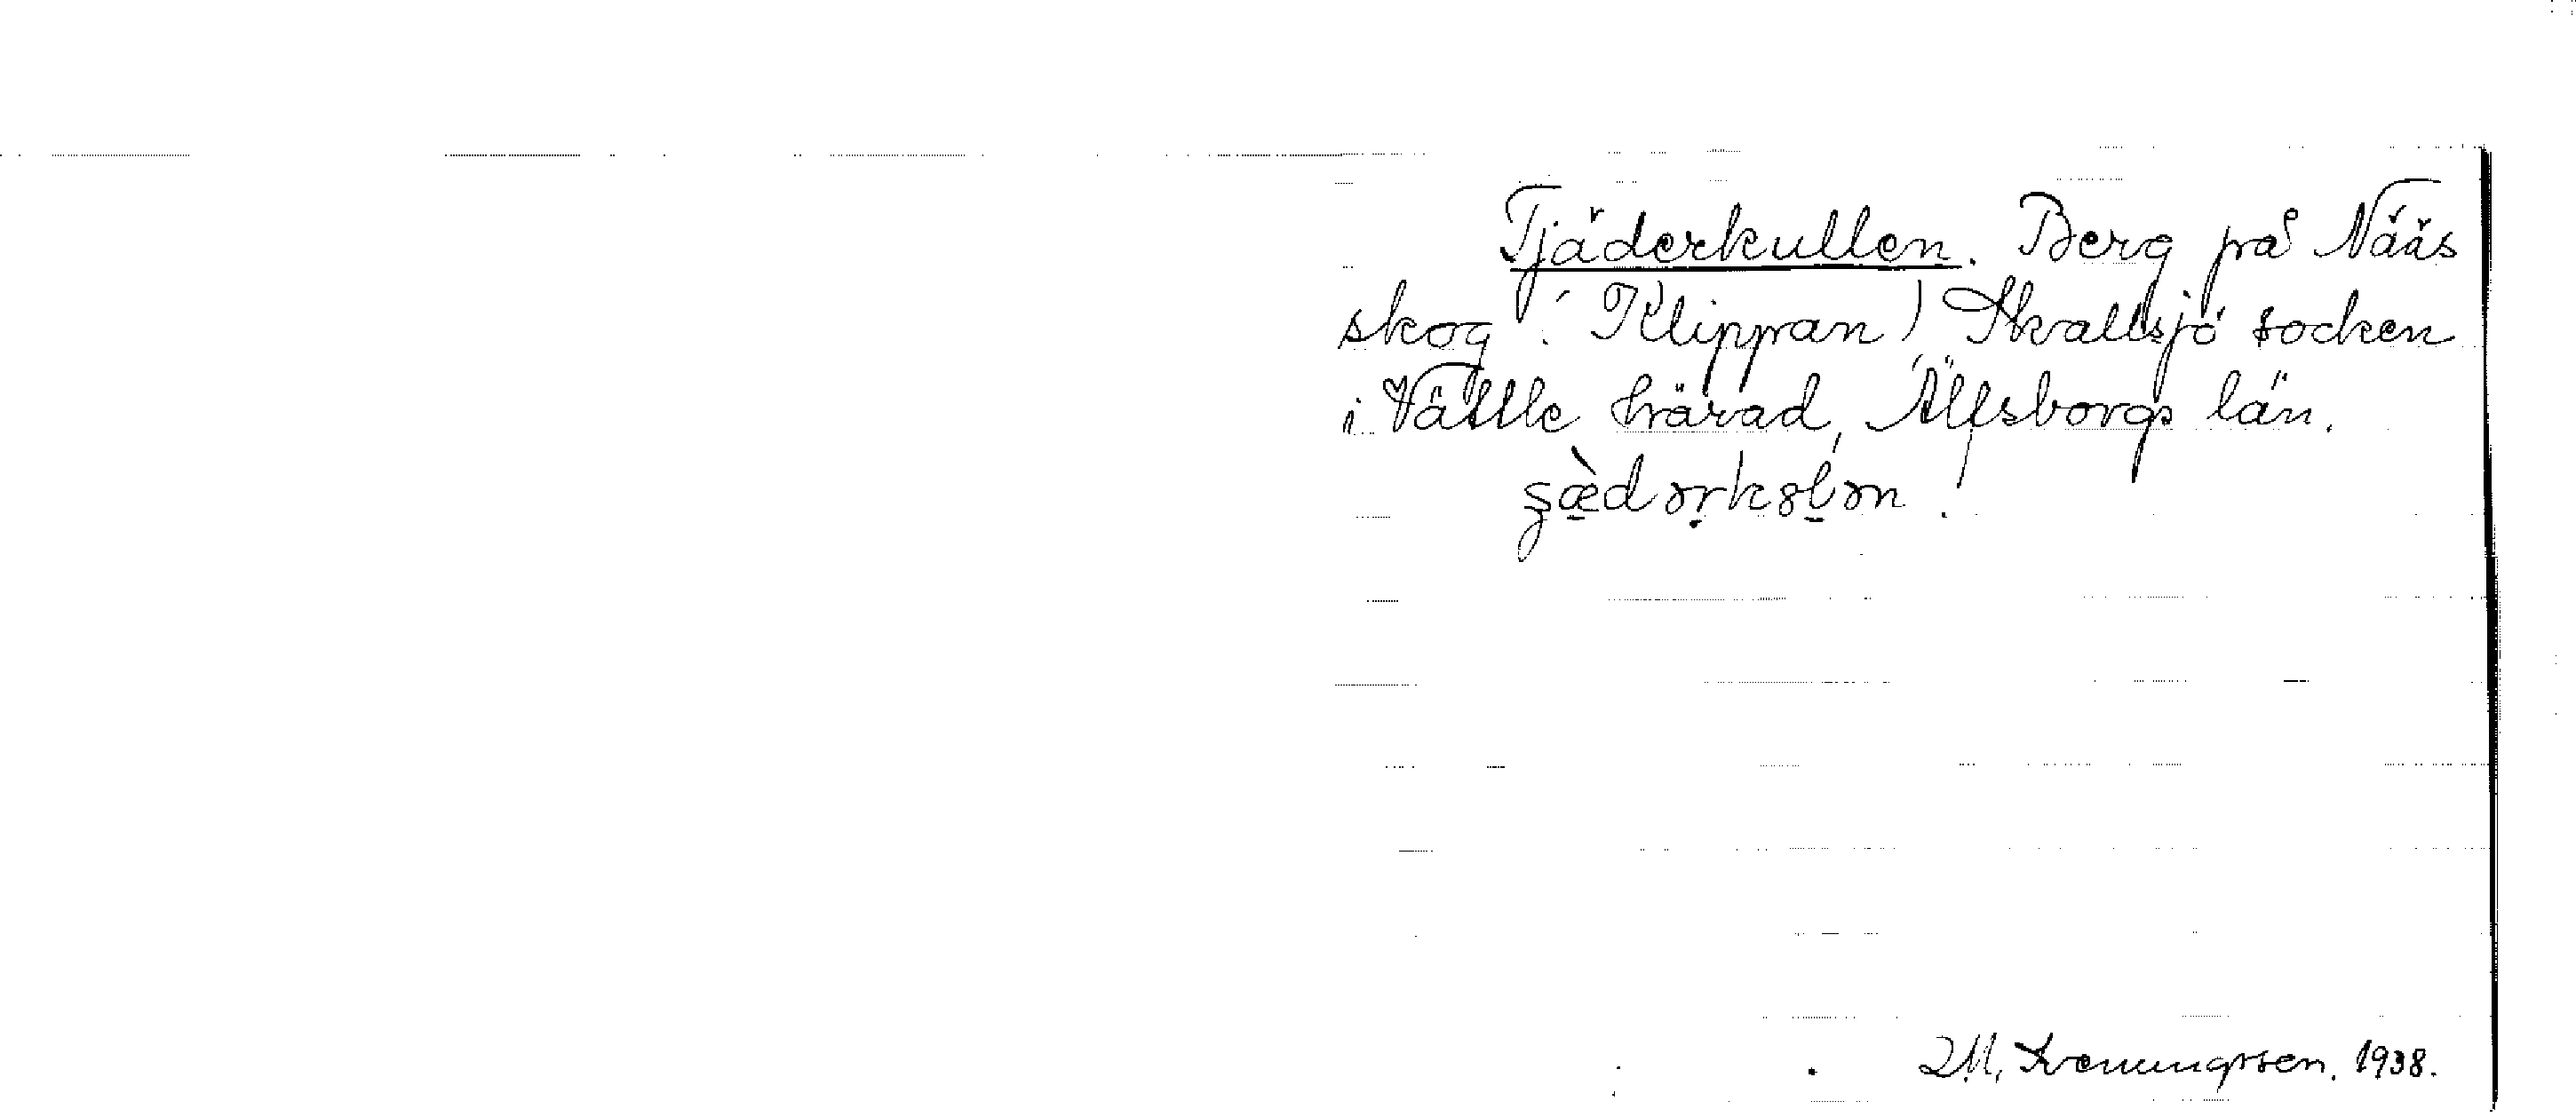 Tjäderkullen. Berg på Nääs
skog (Klippan) Skallsjö socken
i Vättle härad, Älfsborgs län.
1938.